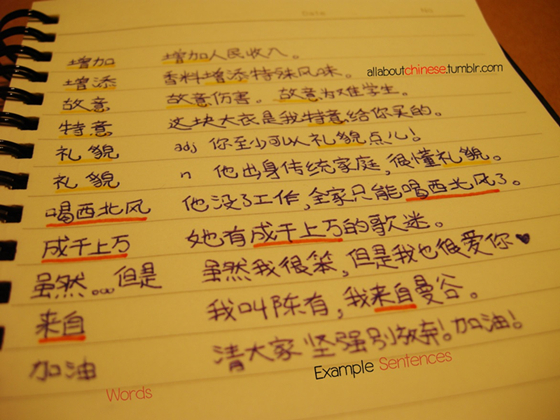 Date
No
allaboutchinese.tumblr.com
增加 增加人民收入。
增添 香料增添特殊风味。
故意 故意伤害。故意为难学生。
特意 这块大衣是我特意给你买的。
礼貌 adj 你至少可以礼貌点儿!
礼貌 n 他出身传统家庭,很懂礼貌。
喝西北风 他没了工作,全家只能喝西北风了。
成千上万 她有成千上万的歌迷。
虽然...但是 虽然我很笨,但是我也很爱你♥
来自 我叫陈有,我来自曼谷。
加油 清大家坚强别放弃!加油!
Words Example Sentences